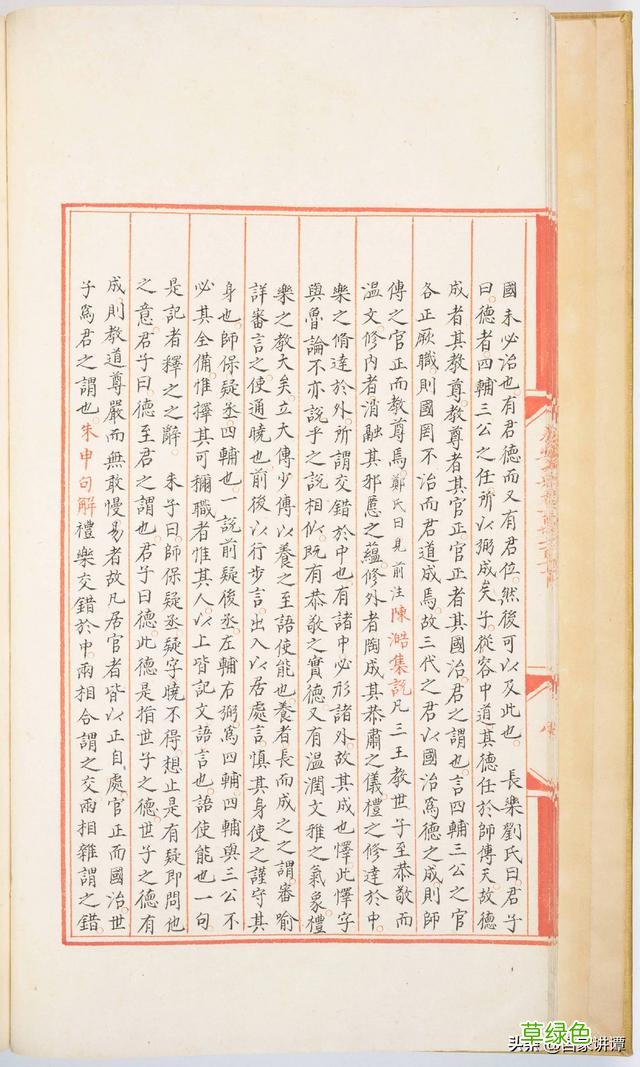 國未必治也有君德而又有君位然後可以及此也　長樂劉氏曰君子
曰德者四輔三公之任所以弼成矣子從容中道其德任於師傅天故德
成者其教尊教尊者其官正官正者其國治君之謂也言四輔三公之官
各正厥職則國罔不治而君道成焉故三代之君以國治爲德之成則師
傅之官正而教尊焉鄭氏曰見前注陳澔集說凡三王教世子至恭敬而
温文修内者消融其邪慝之蘊修外者陶成其恭肅之儀禮之修達於中
樂之脩達於外所謂交錯於中也有諸中必形諸外故其成也懌此懌字
與魯論不亦說乎之說相似既有恭敬之實德又有温潤文雅之氣象禮
樂之教大矣立大傅少傅以養之至語使能也養者長而成之之謂審喻
詳審言之使通曉也前後以行步言出入以居處言慎其身使之謹守其
身也師保疑丞四輔也一說前疑後丞左輔右弼爲四輔四輔與三公不
必其全備惟擇其可稱職者惟其人以上皆記文語言也語使能也一句
是記者釋之之辭　朱子曰師保疑丞疑字曉不得想止是有疑即問他
之意君子曰德至君之謂也君子曰德此德是指世子之德世子之德有
成則教道尊嚴而無敢慢易者故凡居官者皆以正自處官正而國治世
子爲君之謂也朱申句解禮樂交錯於中兩相合謂之交兩相雜謂之錯
草绿色
头条 @百家讲谭